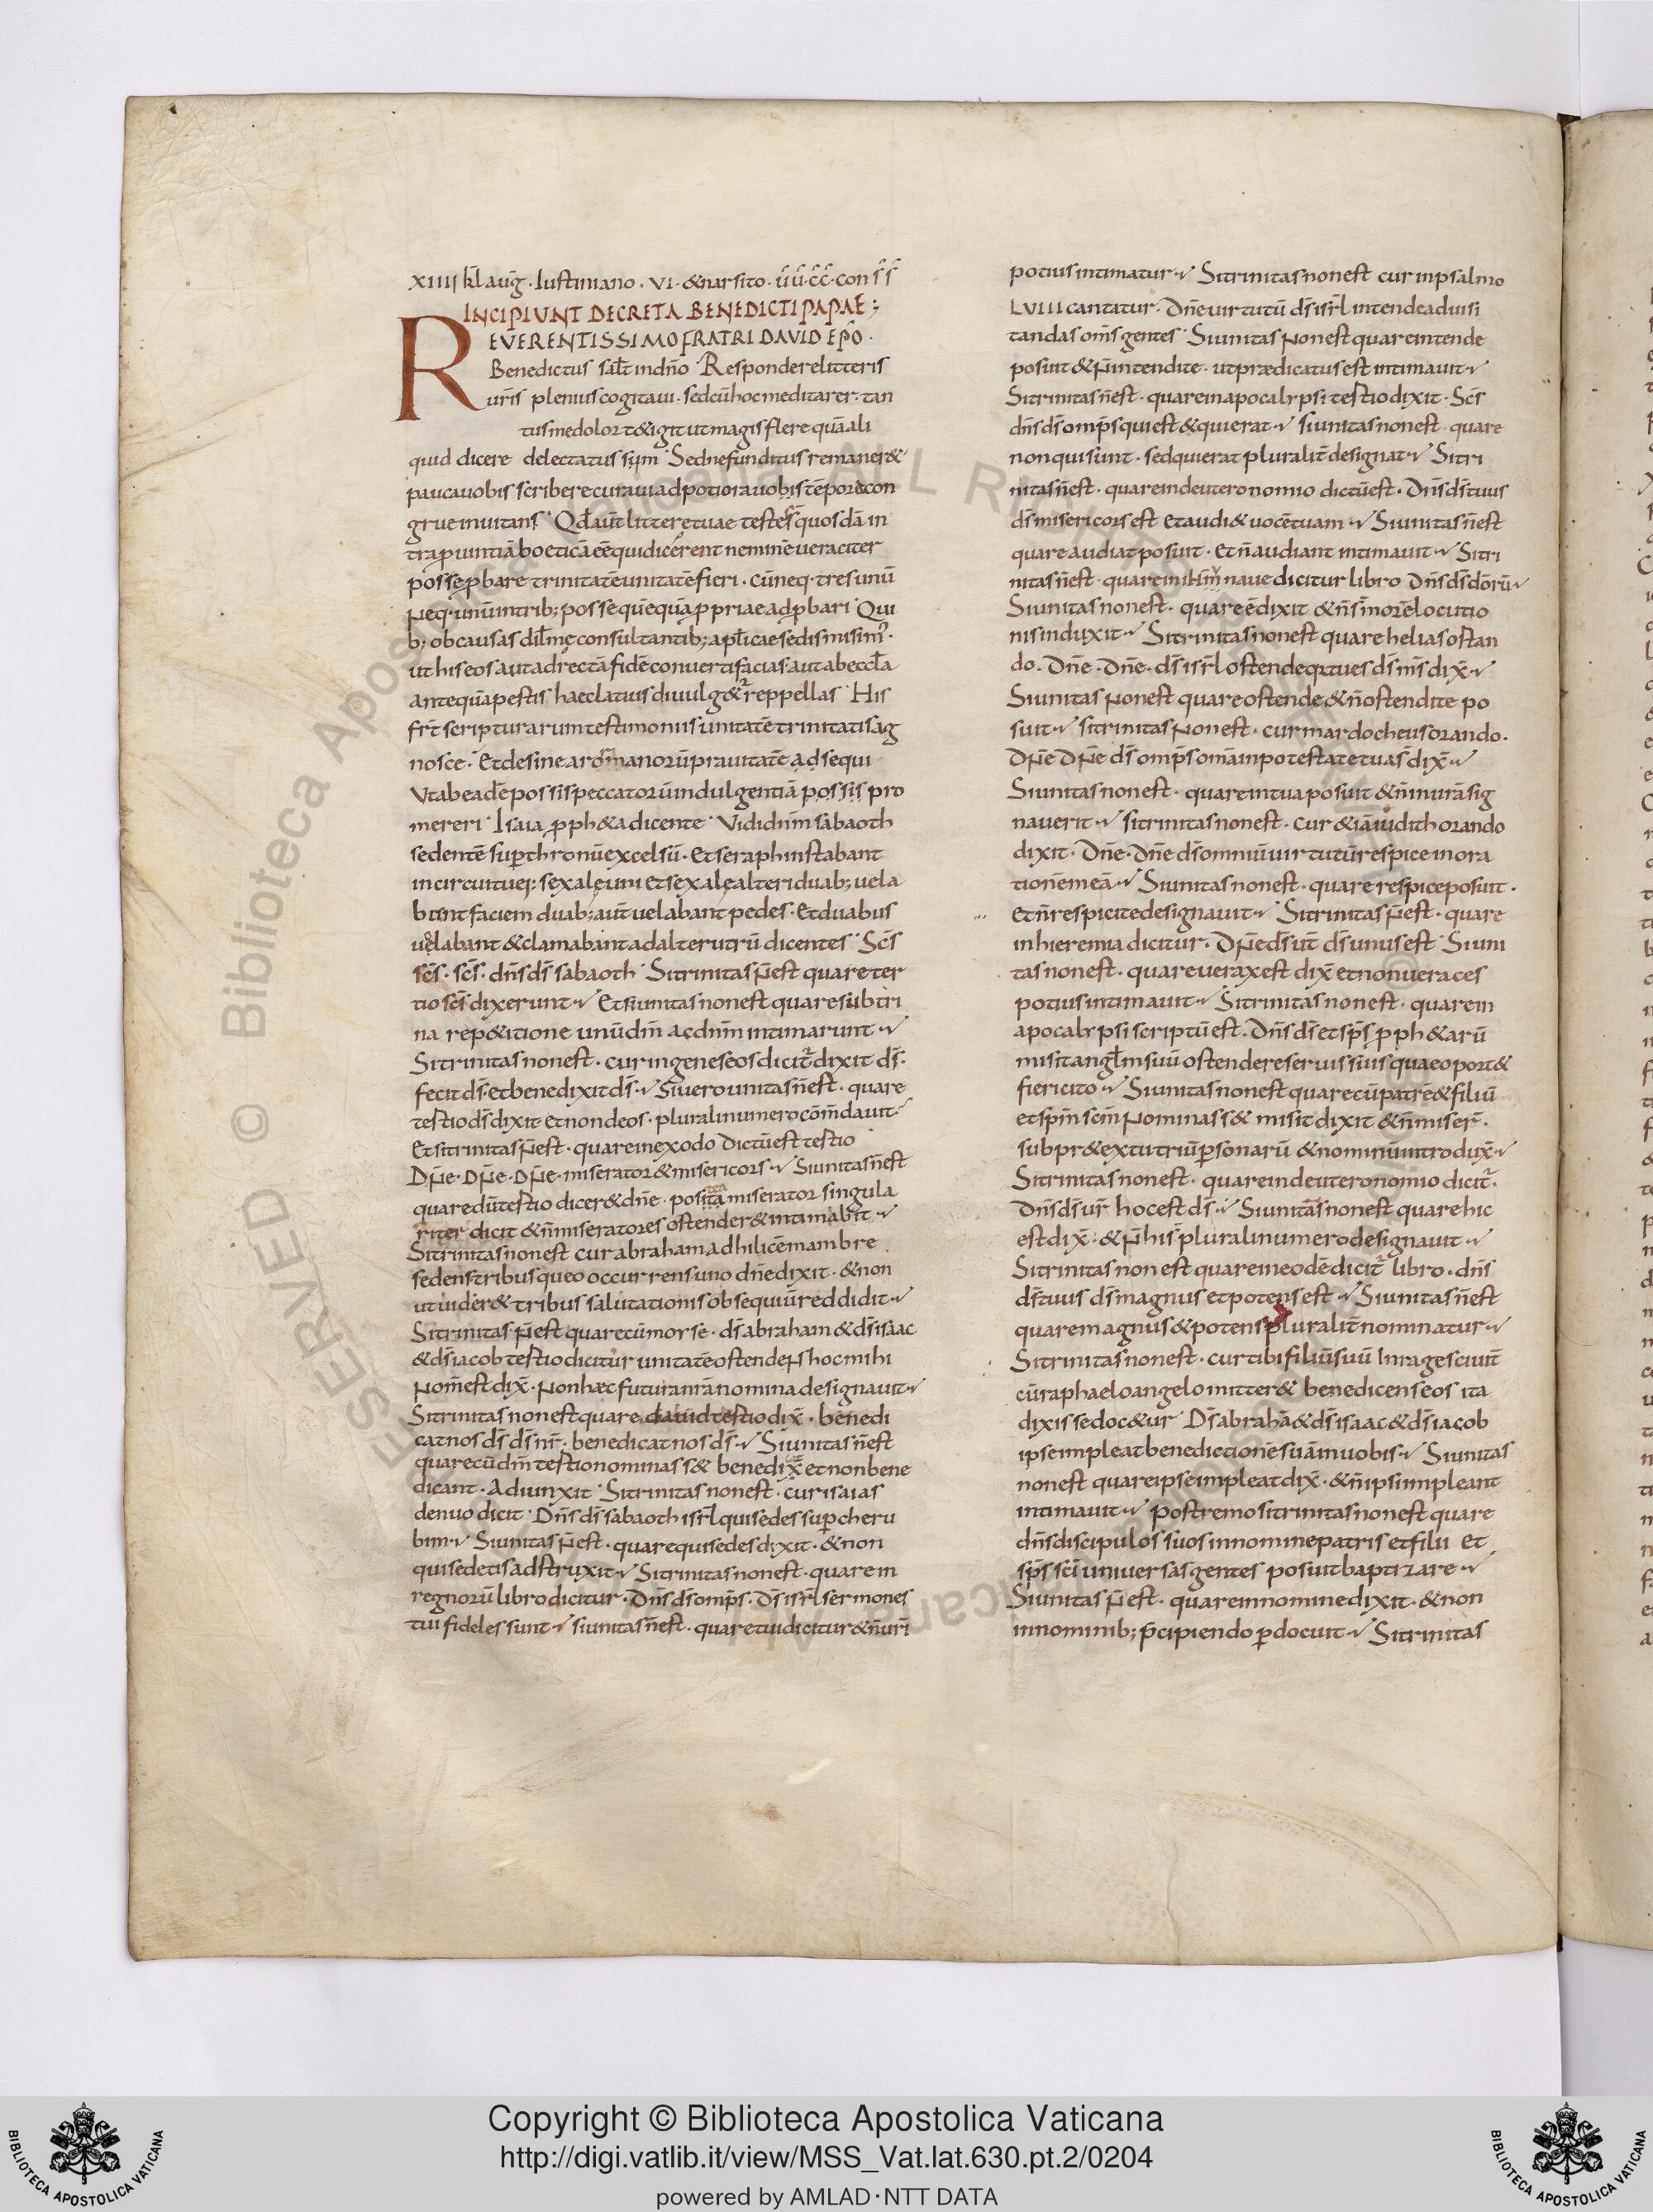 XIIII kl̄ aug̅. Iustiniano. VI. & narsito. ū ū. c̄c̄. con s̄s̄
INCIPIUNT DECRETA BENEDICTI PAPAE;
REVERENTISSIMO FRATRI DAVID EP̄O.
Benedictus sal̄t in dn̄o. Respondere litteris
ur̄is plenius cogitaui. sed cū hoc meditarer. tan
tus me dolor t&igit ut magis flere quā ali
quid dicere delectatus sum. Sed ne funditus remaner&
pauca uobis scribere curaui ad potiora uobis tēpore con
grue inuitans. Qd̄ aūt littere tuae testes quosdā in
posse pbare trinitatē unitatē fieri. cū neq. tres unū
neq. unū in trib; posse quēquā ppriae adpbari. Qui
b; ob causas dil̄mę consultantib; apl̄icae sedis misim̄.
ut his eos aut ad rectā fidē conuerti facias. aut ab eccl̄a
antequā pestis haec latius diuulg&r̄ reppellas. His
fr̄t scripturarum testimoniis unitatē trinitatis ag
nosce. Et desine aromanorū prauitatē adsequi
Ut ab eadē possis peccatorū indulgentiā possis pro
mereri. Isaia pph&a dicente. Vidi dn̄m sabaoth
sedentē sup thronū excelsū. Et seraphin stabant
in circuitu ei: sex ale uni et sex ale alteri duab; uela
bant faciem duab; aūt uelabant pedes. Et duabus
uolabant & clamabant ad alterutrū dicentes. Sc̄s
sc̄s. sc̄s. dn̄s ds̄ sabaoth. Si trinitas n̄ est quare ter
tio sc̄s dixerunt. Et si unitas non est quare sub tri
na rep&itione unū dm̄ ac dn̄m intimarunt.
Si trinitas non est. cur in geneseos dicit̄ dixit ds̄.
fecit ds̄. et benedixit ds̄. Si uero unitas n̄ est. quare
testio ds̄ dixit et non deos. plurali numero cōmdauit.
Et si trinitas n̄ est. quare in exodo dictū est testio
Dn̄e. Dn̄e. Dn̄e. miserator & misericors. Si unitas n̄ est
quare dū testio dicer& dn̄e. posita miserator singula
riter dicit & n̄ miseratores ostender& intimabit.
Si trinitas non est cur abraham ad hilicē mambre
sedens tribusque occurrens uno dn̄e dixit. & non
ut uider& tribus salutationis obsequiū reddidit.
Si trinitas n̄ est quare cū morse. ds̄ abraham & ds̄ isaac
& ds̄ iacob testio dicitur unitatē ostendens hoc mihi
nom̄ est dix̄. Non hæc futura ur̄a nomina designauit.
Si trinitas non est quare dauid testio dix̄. benedi
cat nos ds̄ ds̄ nr̄. benedicat nos ds̄. Si unitas n̄ est
quare cū dm̄ testio nominass& benedix̄ et non bene
dicant. Adiunxit. Si trinitas non est. cur isaias
denuo dicit. Dn̄s ds̄ sabaoth isrl̄ qui sedes sup cheru
bim. Si unitas n̄ est. quare qui sedes dixit. & non
qui sedetis adstruxit. Si trinitas non est. quare in
regnorū libro dicitur. Dn̄s ds̄ omp̄s. Ds̄ isrl̄ sermones
tui fideles sunt. si unitas n̄ est. quare tui dicitur & n̄ uri
potius intimatur. Si trinitas non est cur in psalmo
LVIII cantatur. Dn̄e uirtutū ds̄ isrl̄ intende ad uisi
tandas om̄s gentes. Si unitas non est quare intende
posuit & n̄ intendite. ut prædicatus est intimauit
Si trinitas n̄ est. quare in apocalypsi testio dixit. Sc̄s
dn̄s ds̄ omp̄s qui est & qui erat. si unitas non est. quare
non qui sunt. sed qui erat pluralit̄ designat. Si tri
nitas n̄ est. quare in deuteronomio dictū est. Dn̄s ds̄ tuus
ds̄ misericors est et audi& uocē tuam. Si unitas n̄ est
quare audiat posuit. et n̄ audiant intimauit. Si tri
Si unitas non est. quare ē dixit & n̄ s̄ in orē locutio
nis induxit. Si trinitas non est quare helias ostan
do. Dn̄e. Dn̄e. ds̄ isrl̄ ostende q tu es ds̄ nīs dix̄.
Si unitas non est quare ostende & n̄ ostendite po
suit. si trinitas non est. cur mardocheus orando.
Dn̄e Dn̄e ds̄ omp̄s omā in potestate tua s̄ dix̄.
Si unitas non est. quare in tua posuit & n̄ in ur̄a sig
nauerit. si trinitas non est. cur & iā iudith orando
dixit. Dn̄e. Dn̄e ds̄ omniū uirtutū respice in ora
tionē meā. Si unitas non est. quare respice posuit.
et n̄ respicite designauit. Si trinitas n̄ est. quare
in hieremia dicitur. Dn̄e ds̄ ut̄ ds̄ unus est. Si uni
tas non est. quare uerax est dix̄ et non ueraces
potius intimauit. Si trinitas non est. quare in
apocalypsi scriptū est. Dn̄s ds̄ et sp̄s pph&arū
misit angl̄m suū ostendere seruis suis quae oport&
fieri cito. Si unitas non est quare cū patrē & filiū
et sp̄m sc̄m nominass& misit dixit & n̄ miser̄.
subpr&extu triū psonarū & nominū introdux̄.
Si trinitas non est. quare in deuteronomio dicit̄.
Dn̄s ds̄ ur̄ hoc est ds̄. Si unitas non est quare hic
est dix̄. & n̄ his plurali numero designauit.
Si trinitas non est quare in eodē dicit̄ libro. dn̄s
ds̄ tuus ds̄ magnus et potens est. Si unitas n̄ est
quare magnus & potens pluralit̄ nominatur.
Si trinitas non est. cur tibi filiū suū In rages ciuit̄
cū raphaelo angelo mitter& benedicens eos ita
dixisse doc&ur. Ds̄ abrahā & ds̄ isaac & ds̄ iacob
ipse impleat benedictionē suā in uobis. Si unitas
non est quare ipse impleat dix̄. & n̄ ipsi impleant
intimauit. Postremo si trinitas non est quare
dn̄s discipulos suos in nomine patris et filii et
sp̄s sc̄i uniuersas gentes posuit baptizare.
Si unitas n̄ est. quare in nomine dixit. & non
in nominib; p̄cipiendo pdocuit. Si trinitas
Copyright © Biblioteca Apostolica Vaticana
http://digi.vatlib.it/view/MSS_Vat.lat.630.pt.2/0204
powered by AMLAD·NTT DATA
BIBLIOTECA APOSTOLICA VATICANA
BIBLIOTECA APOSTOLICA VATICANA